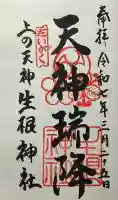 奉拝 令和七年三月二十五日
天神瑞降
だいがく
上の天神 生根神社